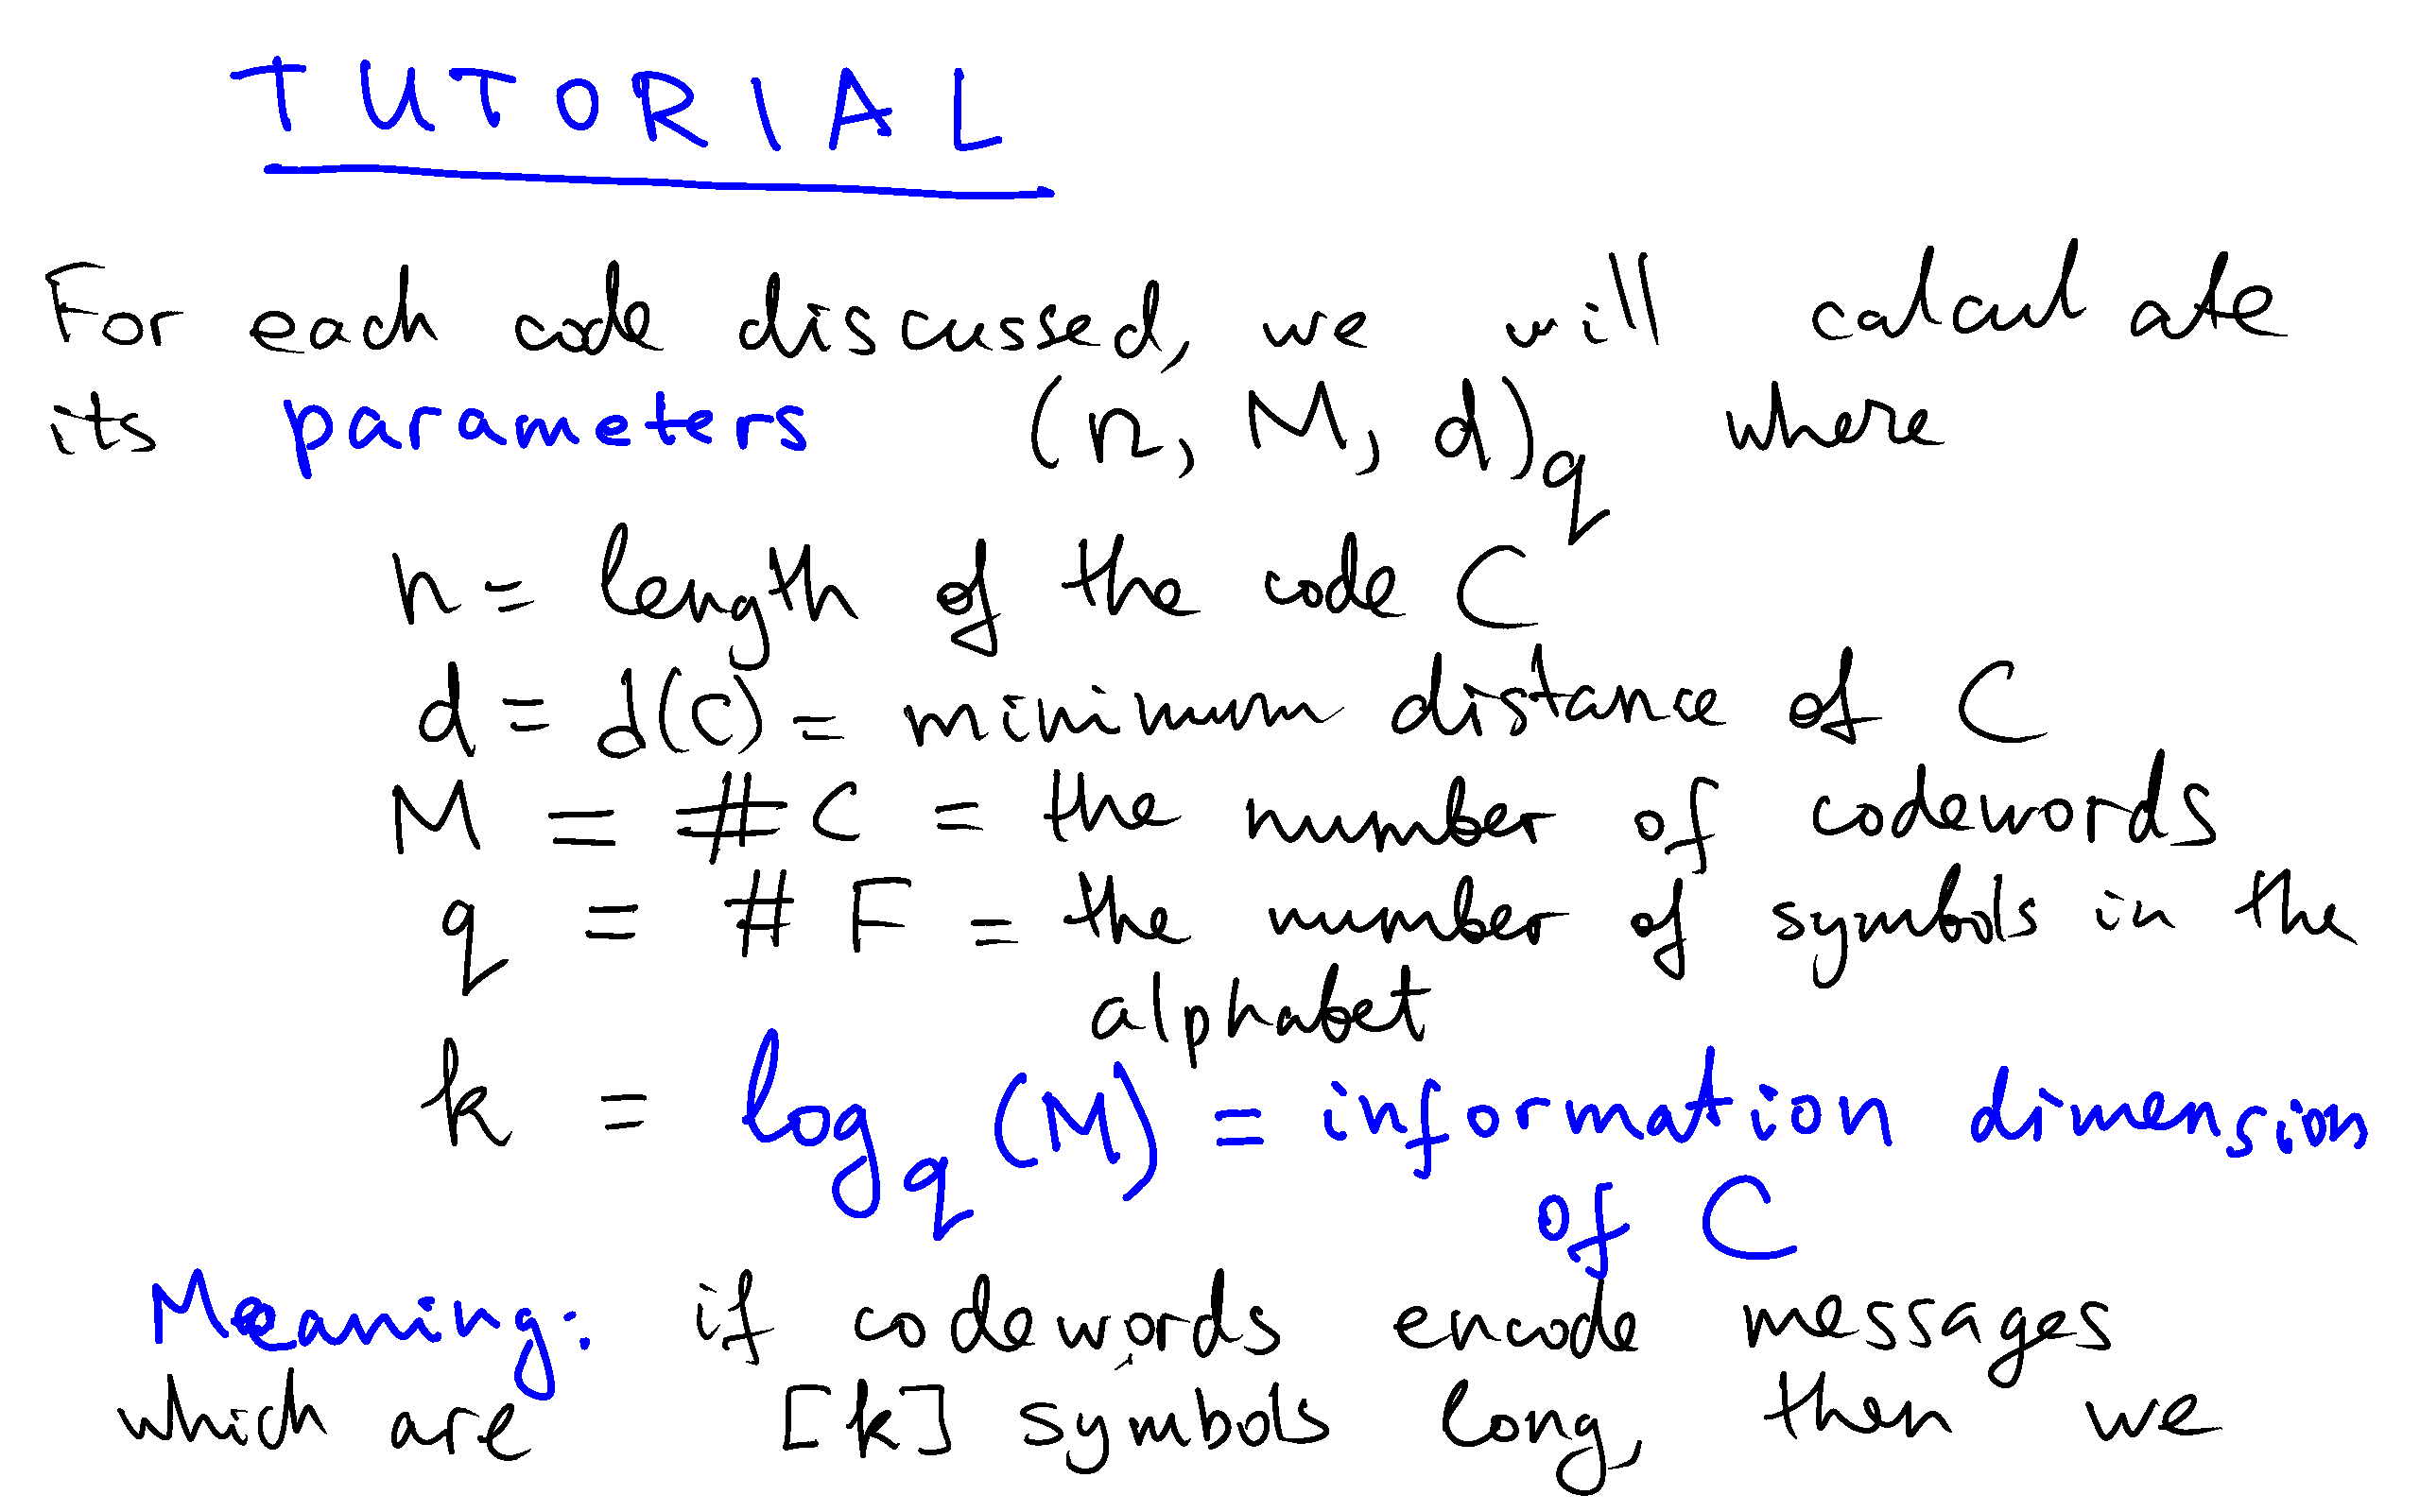 TUTORIAL
For each code discussed, we will calculate
its parameters (n, M, d)_q where
n = length of the code C
d = d(C) = minimum distance of C
M = #C = the number of codewords
q = #F = the number of symbols in the
alphabet
k = log_q (M) = information dimension
of C
Meaning: if codewords encode messages
which are [k] symbols long, then we